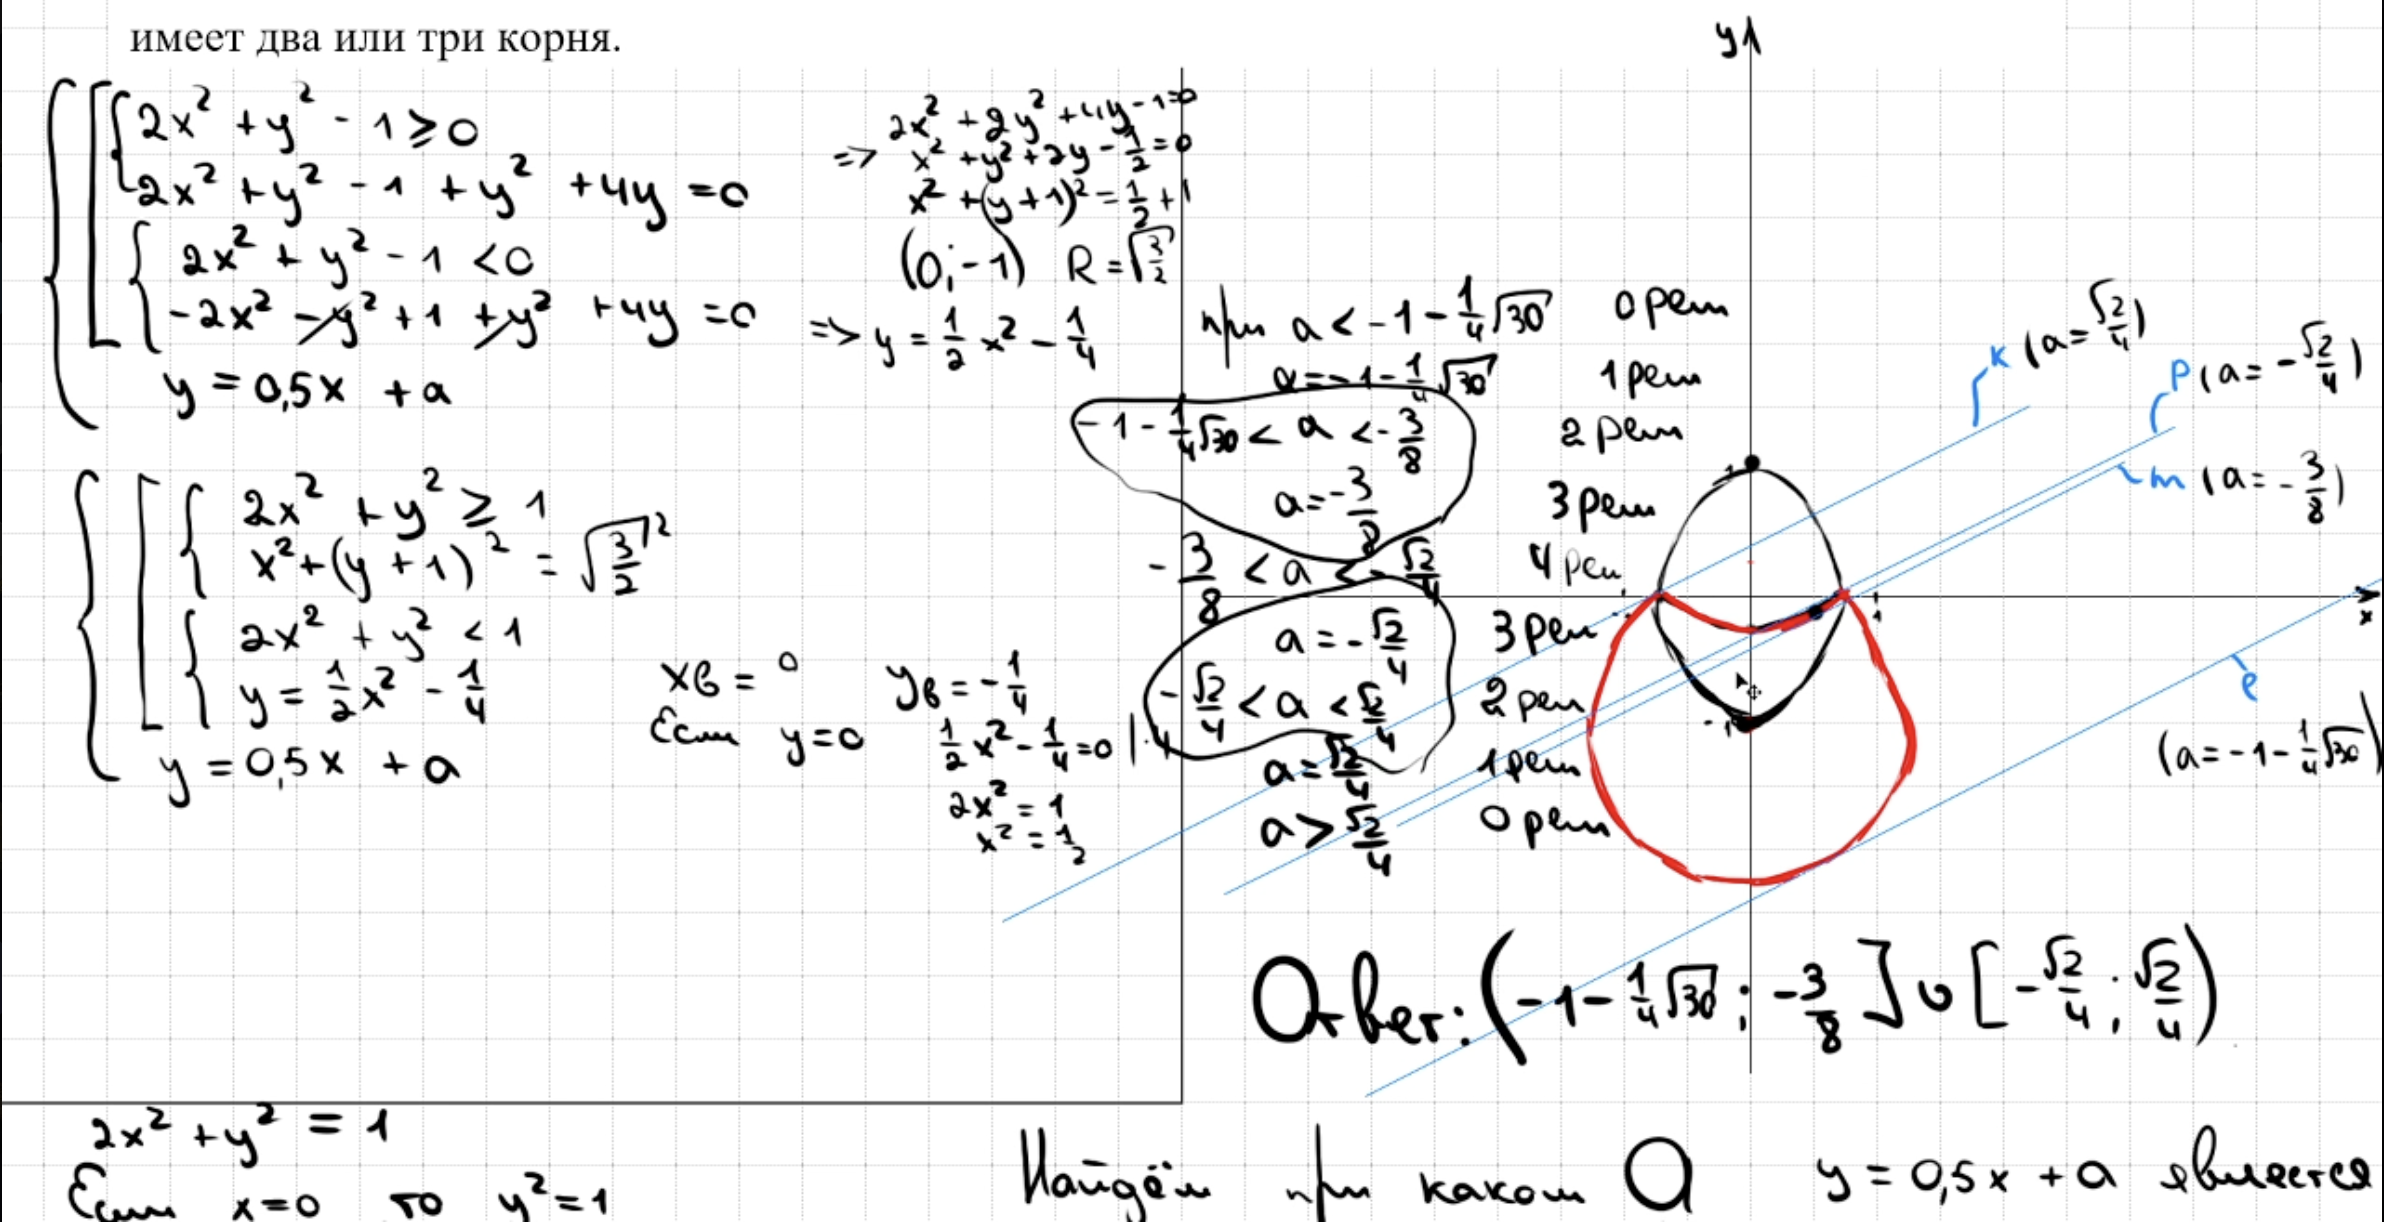 имеет два или три корня.
2x² + y² - 1 ≥ 0
2x² + y² - 1 + y² + 4y = 0
2x² + y² - 1 < 0
-2x² - y² + 1 + y² + 4y = 0
y = 0,5x + a
2x² + 2y² + 4y - 1 = 0
=> x² + y² + 2y - 1/2 = 0
x² + (y + 1)² = 1/2 + 1
(0; -1) R = √3/2
=> y = 1/2 x² - 1/4
2x² + y² ≥ 1
x² + (y + 1)² = √3/2 ²
2x² + y² < 1
y = 1/2 x² - 1/4
y = 0,5x + a
xв = 0 yв = -1/4
Если y = 0 1/2 x² - 1/4 = 0 | · 4
2x² = 1
x² = 1/2
при a < -1 - 1/4 √30 0 реш
a = -1 - 1/4 √30 1 реш
-1 - 1/4 √30 < a < -3/8 2 реш
a = -3/8 3 реш
-3/8 < a < -√2/4 4 реш
a = -√2/4 3 реш
-√2/4 < a < √2/4 2 реш
a = √2/4 1 реш
a > √2/4 0 реш
y 1
k (a = √2/4)
p (a = -√2/4)
m (a = -3/8)
1
1
x
-1
e
(a = -1 - 1/4 √30)
Ответ: (-1 - 1/4 √30; -3/8] ∪ [-√2/4; √2/4)
2x² + y² = 1
Если x = 0 то y² = 1
Найдём при каком a y = 0,5x + a является